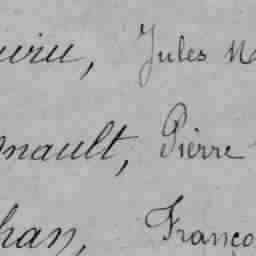 Jules
nault, Pierre
han, Franço